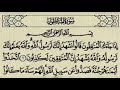 سورة المنافقون
بسم الله الرحمن الرحيم
إذا جاءك المنافقون قالوا نشهد إنك لرسول الله والله يعلم إنك
لرسوله والله يشهد إن المنافقين لكاذبون ① اتخذوا
أيمانهم جنة فصدوا عن سبيل الله إنهم ساء ما كانوا